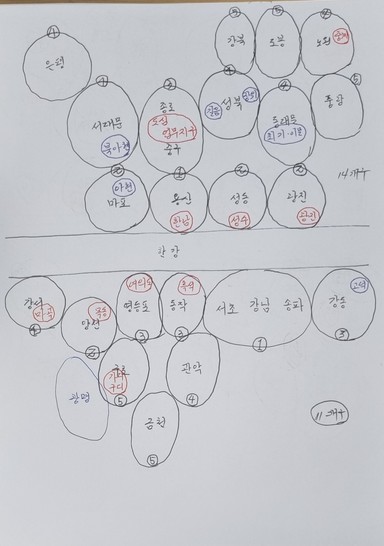 ⑤ ⑤ ④
강북 도봉 노원
④
은평
⑤
중랑
④ ③ ④ ④
서대문
북아현
종로
도심
업무지구
중구
성북
길음
동대문
휘기·이문
14개구
아현
마포
② ① ② ③
용산
한남
성동
성수
광진
광진
한강
강서
마곡
④
양천
목동
②
여의도
영등포
③
흑석
동작
③
서초 강남 송파
①
고덕
강동
③
광명
구로
가디
구디
⑤
관악
④
금천
⑤
11개구